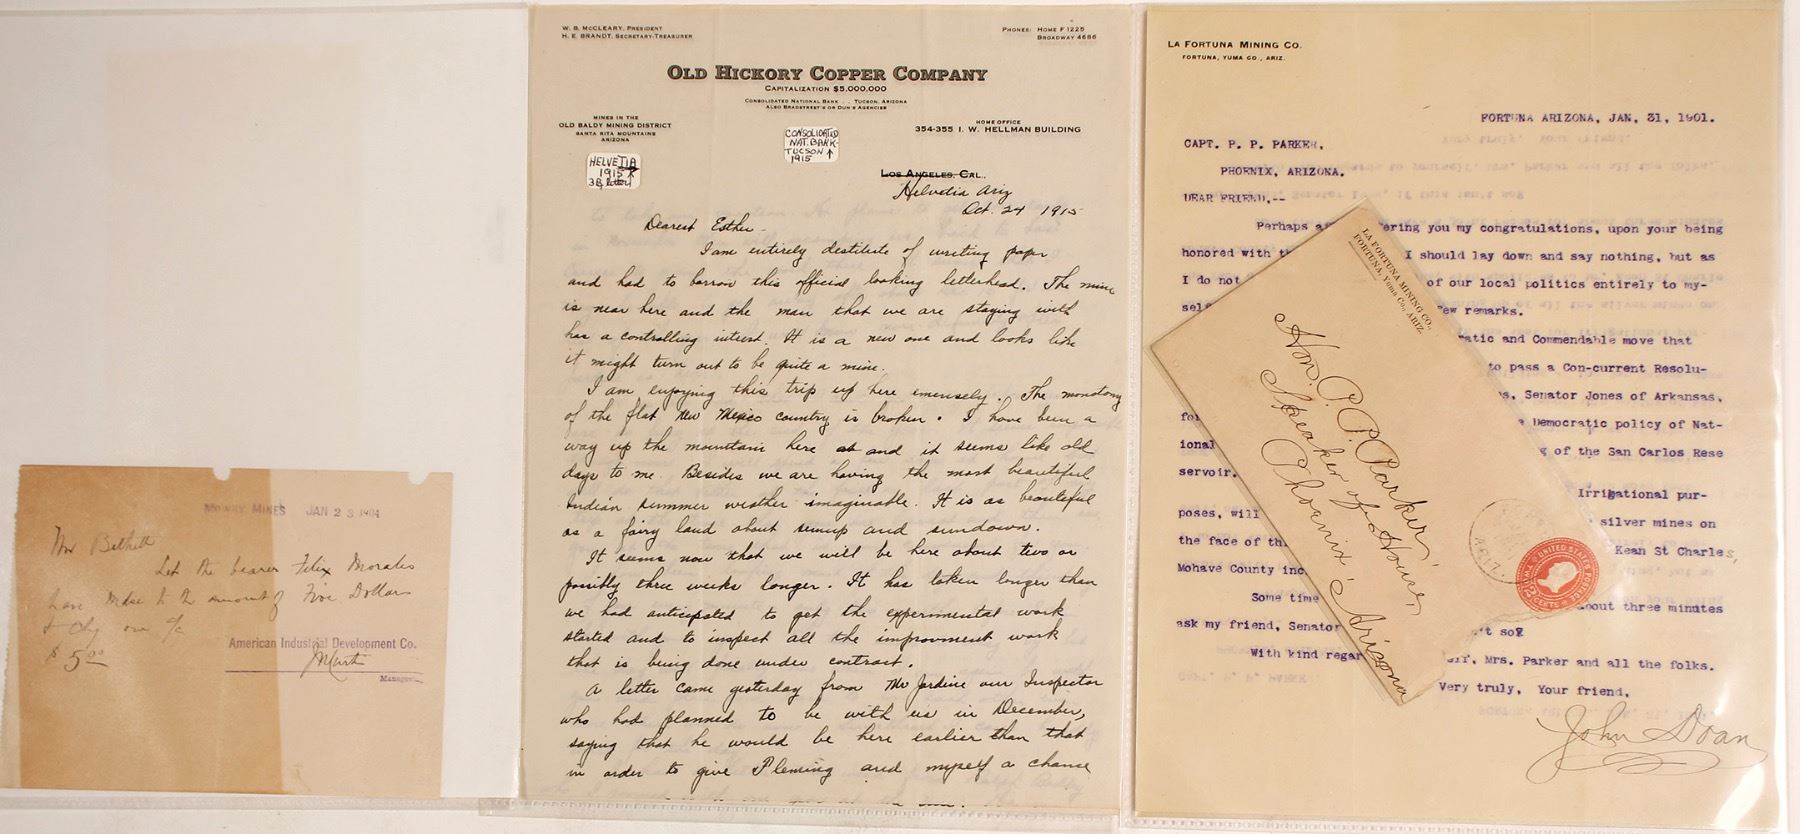 MOWRY MINES JAN 23 1904
Mr Bethell
Let the bearer Felix Morales
have mdse to the amount of Five Dollars
& chg our a/c
$5.00
American Industrial Development Co.
Manager.
W. B. McCleary, President
H. E. Brandt, Secretary-Treasurer
Phones: Home F 1225
Broadway 4686
Old Hickory Copper Company
Capitalization $5,000,000
Consolidated National Bank . . Tucson, Arizona
Also Bradstreet's or Dun's Agencies
Mines in the
Old Baldy Mining District
Santa Rita Mountains
Arizona
Home Office
354-355 I. W. Hellman Building
HELVETIA
1915
3 pg letter
CONSOLIDATED
NAT. BANK
TUCSON ↑
1915
Los Angeles, Cal.
Helvetia Ariz
Oct. 24 1915
Dearest Esther -
I am entirely destitute of writing paper
and had to borrow this official looking letterhead. The mine
is near here and the man that we are staying with
has a controlling interest. It is a new one and looks like
it might turn out to be quite a mine.
I am enjoying this trip up here emensely. The monotony
of the flat New Mexico country is broken. I have been a
way up the mountain here at and it seems like old
days to me. Besides we are having the most beautiful
Indian summer weather imaginable. It is as beautiful
as a fairy land about sunup and sundown.
It seems now that we will be here about two or
possibly three weeks longer. It has taken longer than
we had anticipated to get the experimental work
started and to inspect all the improvment work
that is being done under contract.
A letter came yesterday from Mr Jardine our Inspector
who had planned to be with us in December,
saying that he would be here earlier than that
in order to give Fleming and myself a chance
La Fortuna Mining Co.
Fortuna, Yuma Co., Ariz.
FORTUNA ARIZONA, JAN, 31, 1901.
CAPT. P. P. PARKER,
PHOENIX, ARIZONA.
DEAR FRIEND,--
Perhaps af ering you my congratulations, upon your being
honored with th I should lay down and say nothing, but as
I do not of our local politics entirely to my-
self ew remarks.
atic and Commendable move that
to pass a Con-current Resolu-
s, Senator Jones of Arkansas,
for Democratic policy of Nat-
ional g of the San Carlos Rese
servoir.
Irrigational pur-
poses, will silver mines on
the face of th Kean St Charles,
Mohave County inc
Some time about three minutes
ask my friend, Senator 't so?
With kind regar lf, Mrs. Parker and all the folks.
Very truly, Your friend,
John Doan
LA FORTUNA MINING CO.
FORTUNA, Yuma Co., ARIZ.
Hon. P. P. Parker,
Speaker of House,
Phoenix, Arizona
ARIZ.
UNITED STATES POSTAGE
TWO CENTS